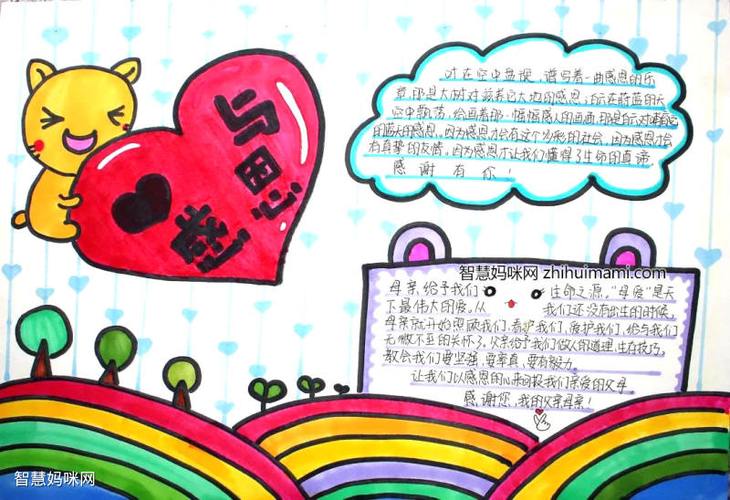 感恩与
叶在空中盘旋，谱写着一曲感恩的乐
章，那是大树对滋养它大地的感恩；白云在蔚蓝的天
空中飘荡，绘画着那一幅幅感人的画面，那是白云对哺育它
的蓝天的感恩。因为感恩才会有这个多彩的社会，因为感恩才会
有真挚的友情。因为感恩才让我们懂得了生命的真谛
感谢有你！
智慧妈咪网 zhihuimami.com
母亲给予我们生命之源，“母爱”是天
下最伟大的爱。从我们还没有出生的时候，
母亲就开始照顾我们，看护我们，爱护我们，给与我们
无微不至的关怀了。父亲给予我们做人的道理，生存技巧，
教会我们要坚强，要率真，要有毅力。
让我们以感恩的心来回报我们亲爱的父母
感谢您，我的父亲母亲！
智慧妈咪网